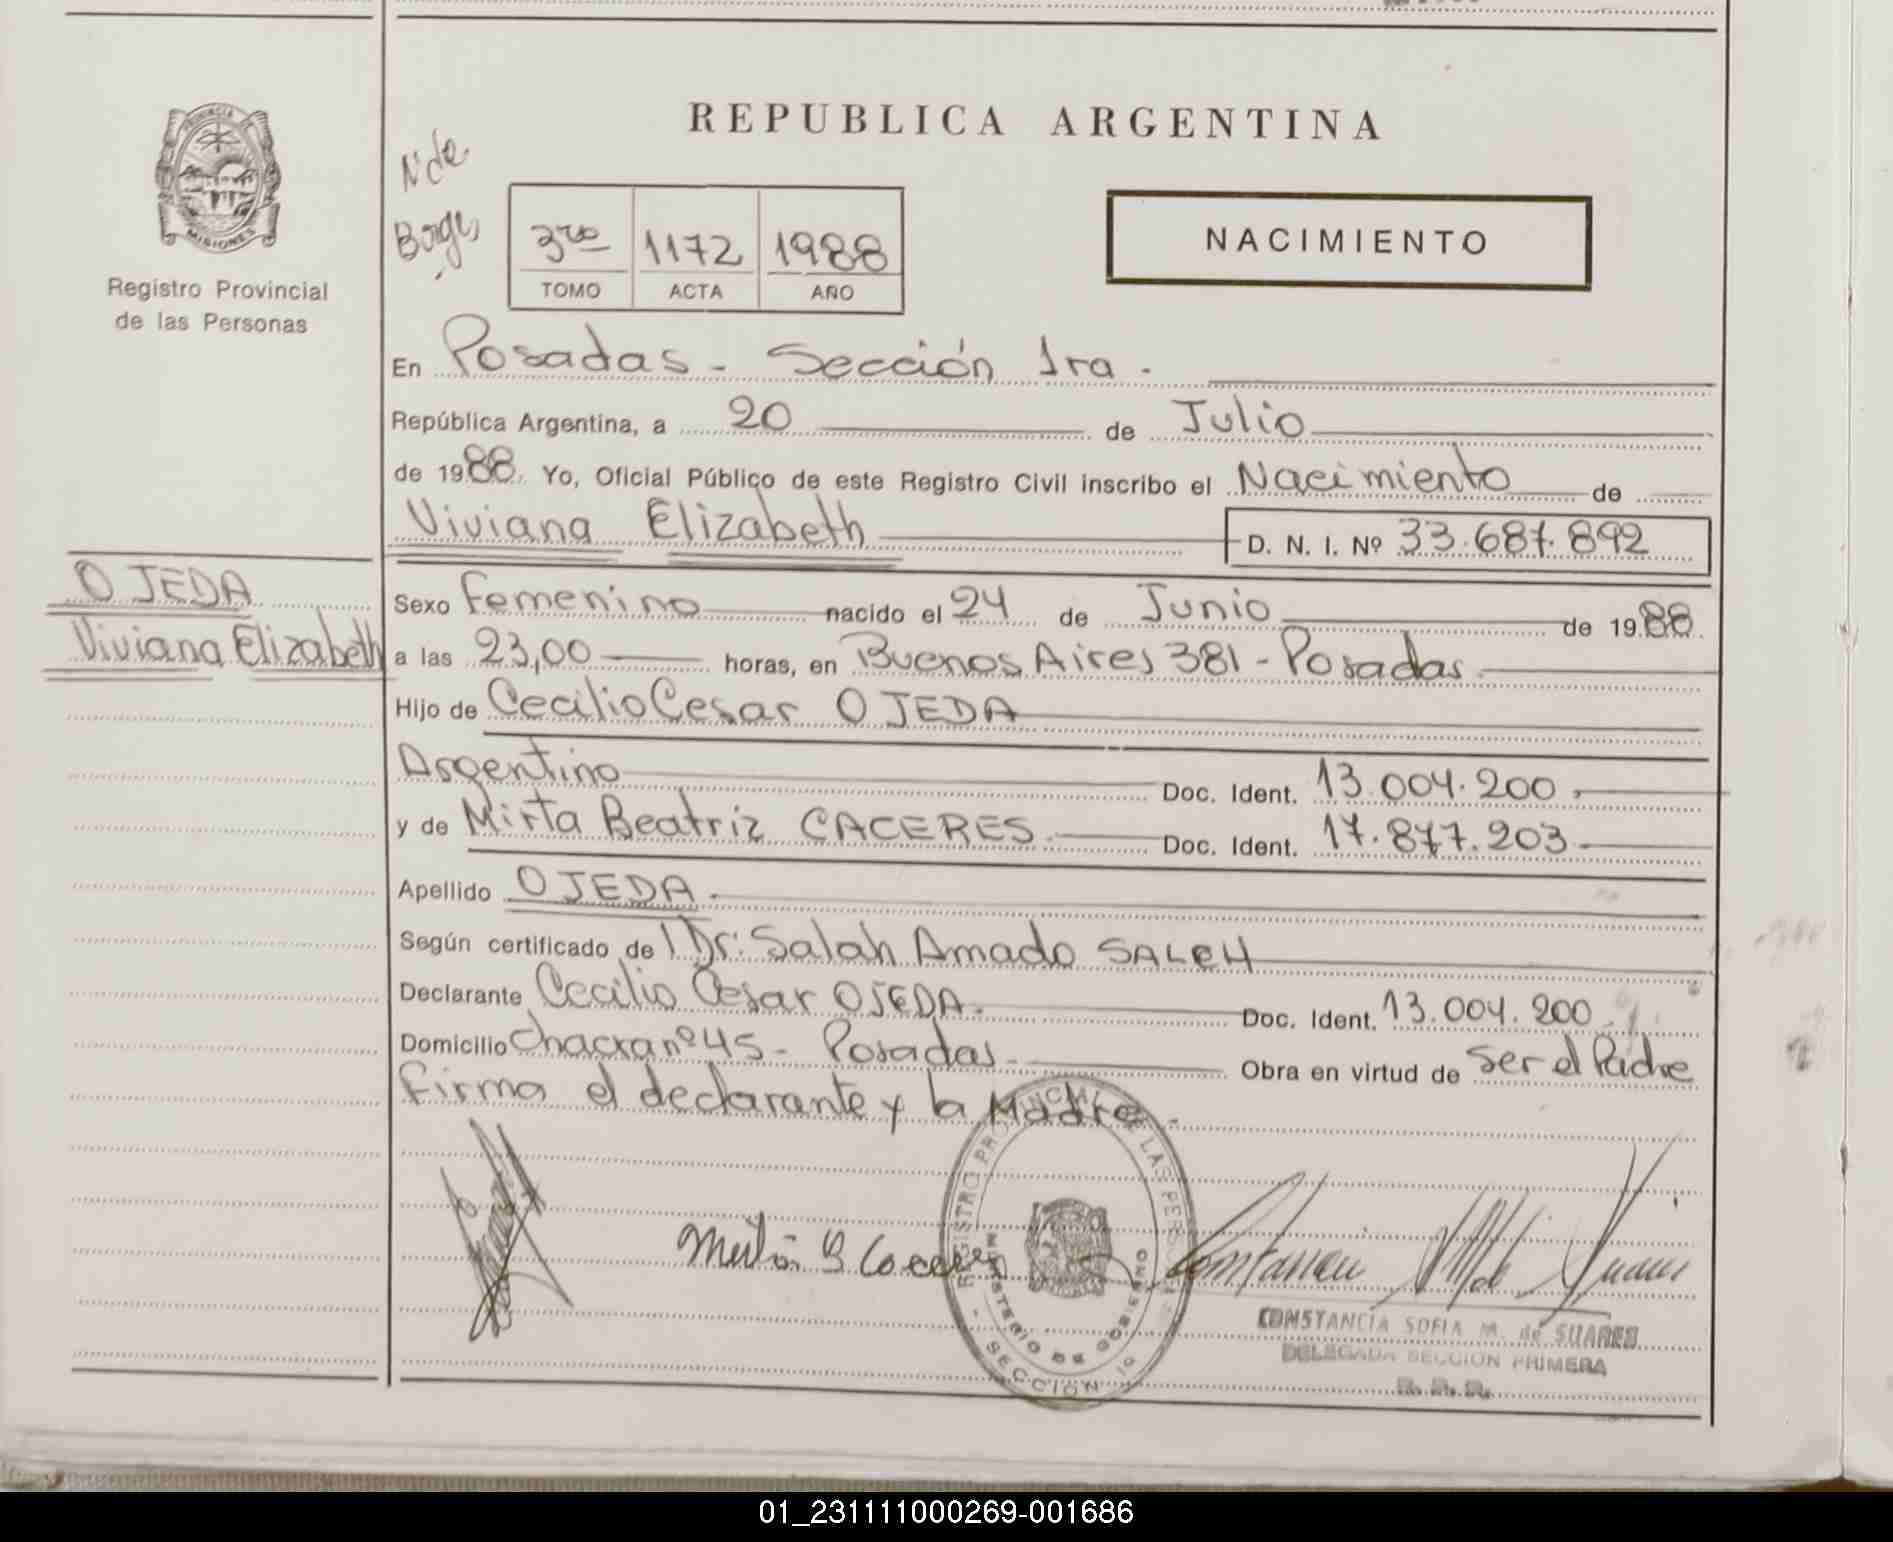 REPUBLICA ARGENTINA
PROVINCIA DE
MISIONES
Registro Provincial
de las Personas
3ro 1172 1988
TOMO ACTA AÑO
NACIMIENTO
En Posadas - Sección 1ra -
República Argentina, a 20 de Julio
de 1988. Yo, Oficial Público de este Registro Civil inscribo el Nacimiento de
Viviana Elizabeth D. N. I. Nº 33.687.892
OJEDA
Viviana Elizabeth
Sexo Femenino nacido el 24 de Junio de 1988.
a las 23,00 horas, en Buenos Aires 381 - Posadas
Hijo de Cecilio Cesar OJEDA
Argentino Doc. Ident. 13.004.200.
y de Mirta Beatriz CACERES. Doc. Ident. 17.877.203
Apellido OJEDA.
Según certificado de Dr: Salah Amado SALEH
Declarante Cecilio Cesar OJEDA. Doc. Ident. 13.004.200
Domicilio Chacra nº 45 - Posadas. Obra en virtud de Ser el Padre
Firma el declarante y la Madre.
REGISTRO PROVINCIAL DE LAS PERSONAS
MINISTERIO DE GOBIERNO
- SECCIÓN 1º
CONSTANCIA SOFIA M. de SUARES
DELEGADA SECCION PRIMERA
R. P. P.
01_231111000269-001686